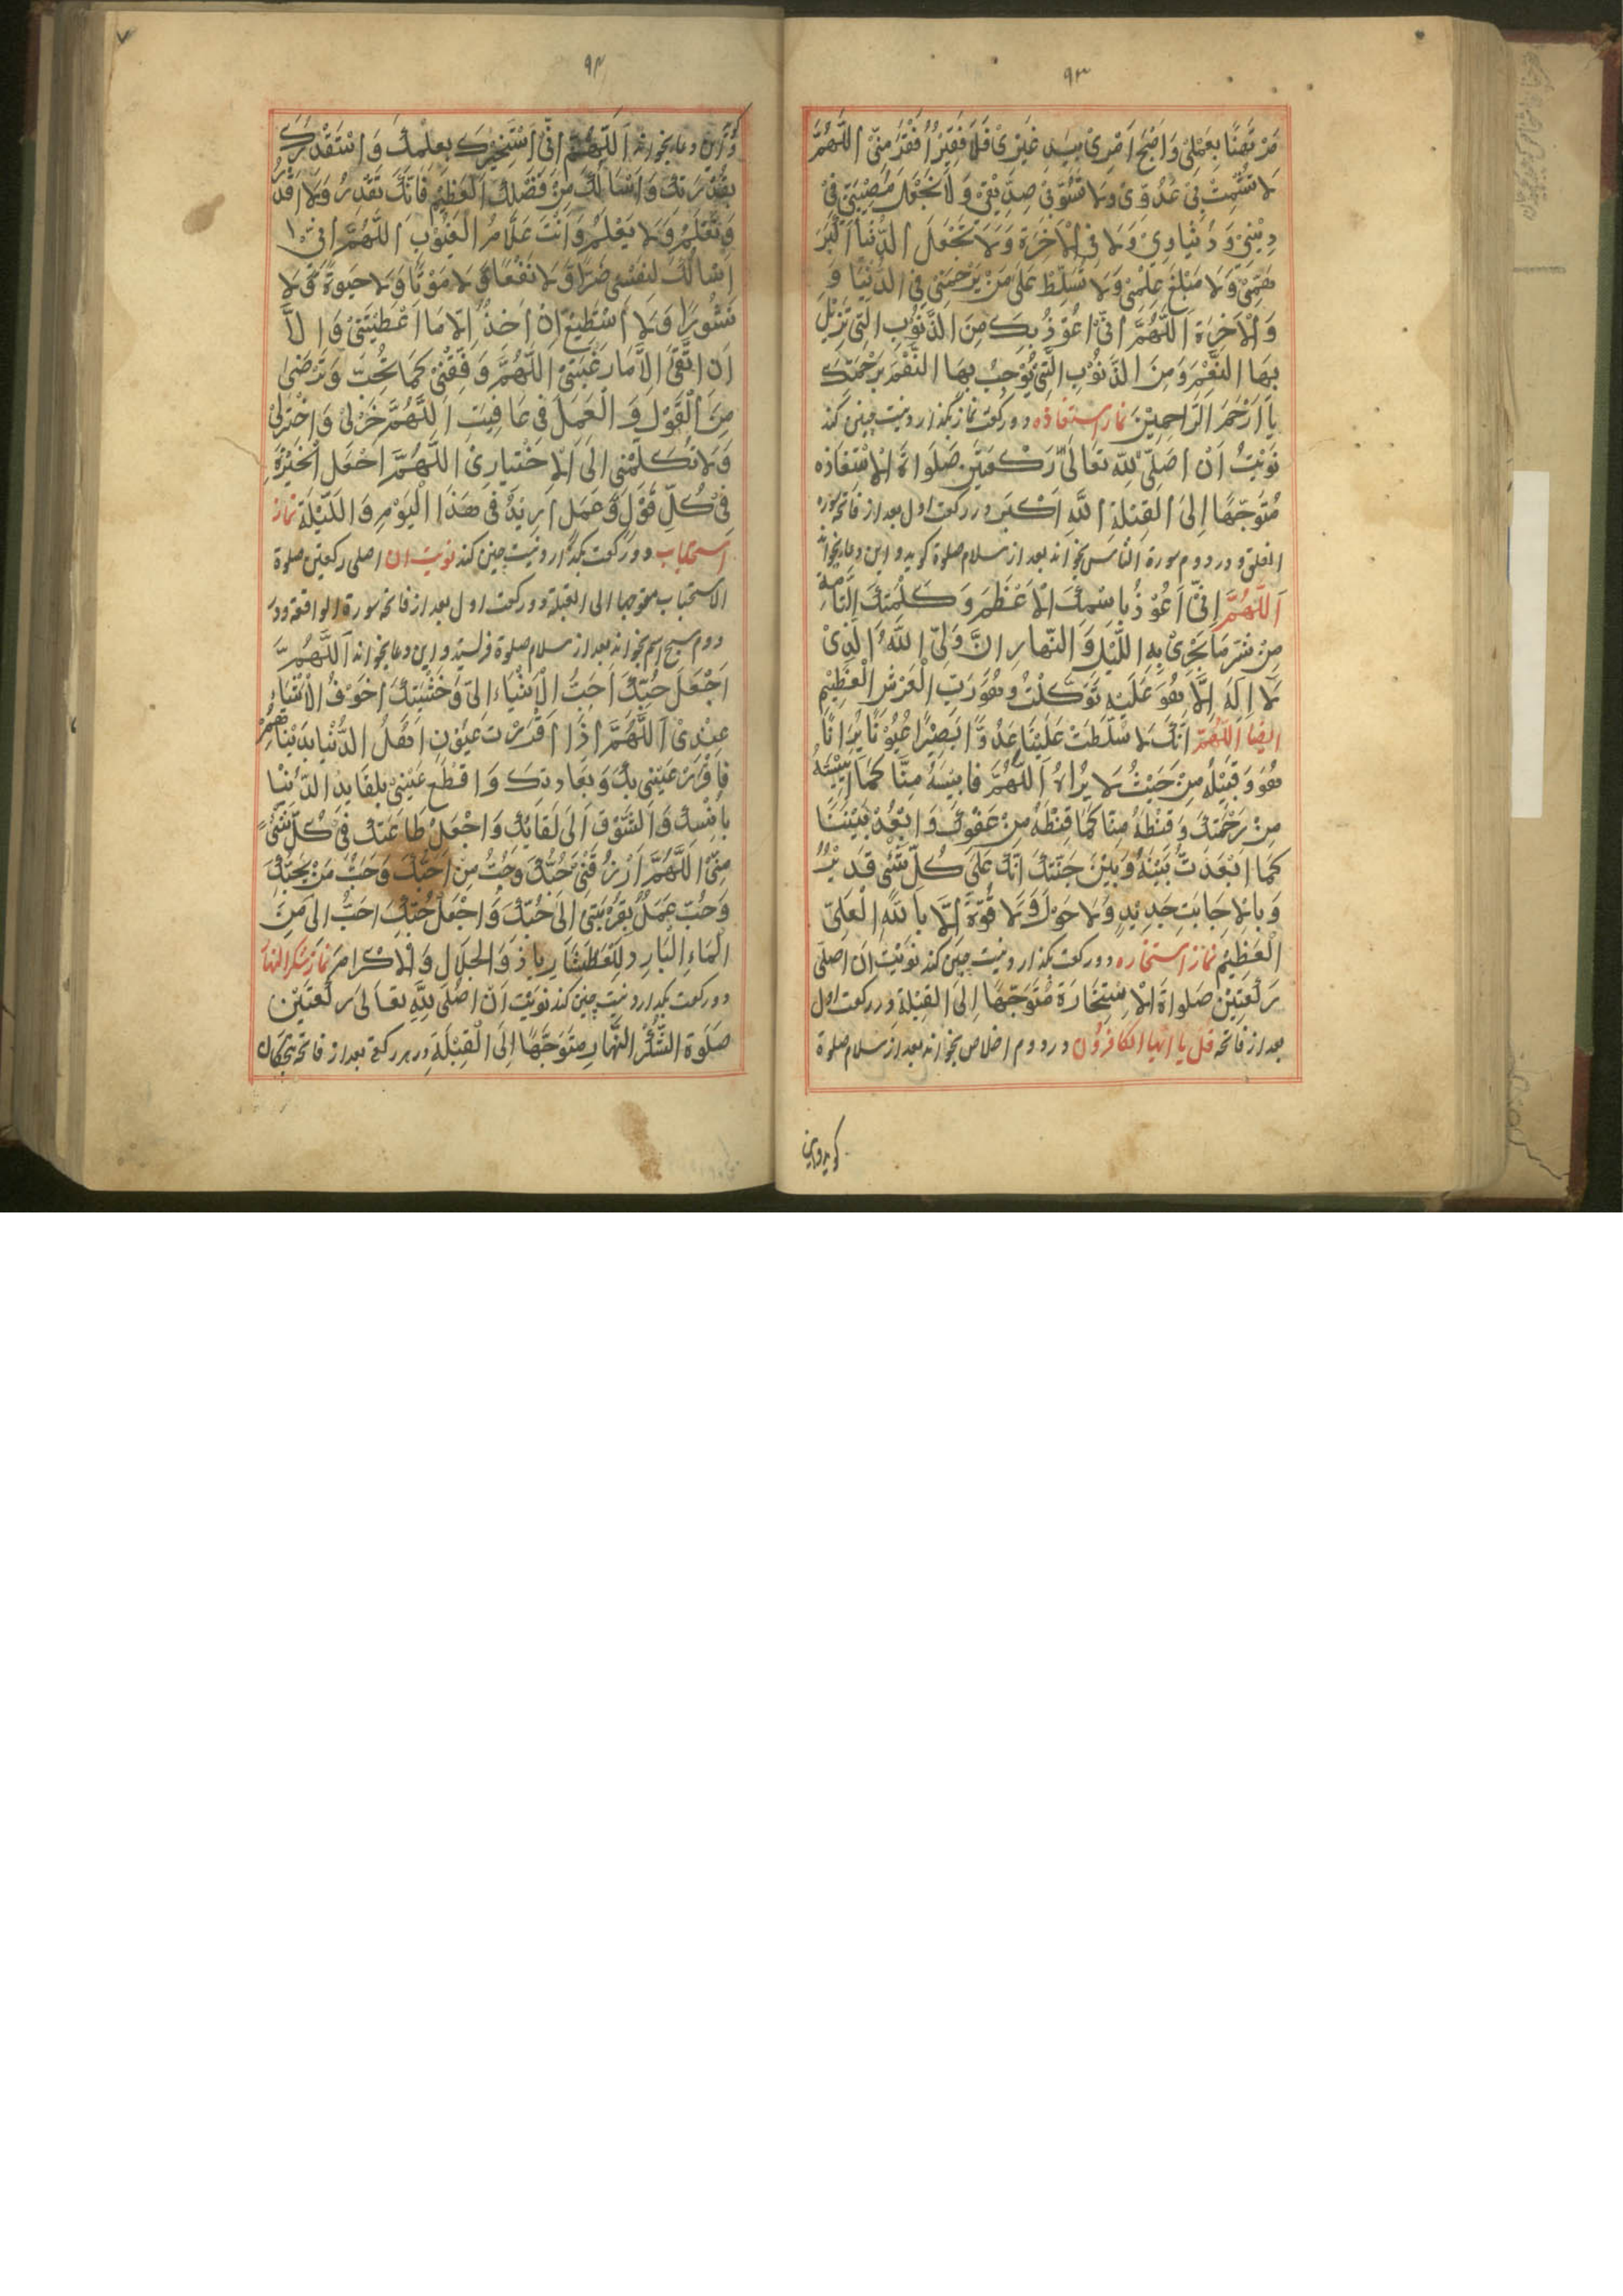 ۹۳
مُرْتَهَنًا بِعَمَلِیْ وَاَصْبَحَ اَمْرِیْ بِیَدِ غَیْرِیْ فَلَا فَقِیْرُ اَفْقَرَ مِنِّیْ اَللّٰهُمَّ
لَا تُشْمِتْ بِیْ عَدُوِّیْ وَلَا تَسُؤْنِیْ صِدِیْقِیْ وَلَا تَجْعَلْ مُصِیْبَتِیْ فِیْ
دِیْنِیْ وَدُنْیَاوِیْ وَلَا فِی الْاٰخِرَةِ وَلَا تَجْعَلِ الدُّنْیَا اَکْبَرَ
هَمِّیْ وَلَا مَبْلَغَ عِلْمِیْ وَلَا تُسَلِّطْ عَلَیَّ مَنْ یَرْحَمُنِیْ فِی الدُّنْیَا وَ
وَالْاٰخِرَةِ اَللّٰهُمَّ اِنِّیْ اَعُوْذُ بِکَ مِنَ الذُّنُوْبِ الَّتِیْ تُزِیْلُ
بِهَا النِّعَمَ وَمِنَ الذُّنُوْبِ الَّتِیْ تُوْجِبُ بِهَا النِّقَمَ بِرَحْمَتِکَ
یَا اَرْحَمَ الرَّاحِمِیْنَ نماز استعاذه دو رکعت نماز بگذارد نیت چنین کند
نَوَیْتُ اَنْ اُصَلِّیَ لِلّٰهِ تَعَالٰی رَکْعَتَیْنِ صَلَوَاةَ الْاِسْتِعَاذه
مُتَوَجِّهًا اِلَی الْقِبْلَةِ اللّٰهُ اَکْبَر در رکعت اول بعد از فاتحه سوره
الفلق و در دوم سورة الناس بخواند بعد از سلام صلوة گوید و این دعا بخواند
اَللّٰهُمَّ اِنِّیْ اَعُوْذُ بِاسْمِکَ الْاَعْظَمِ وَکَلِمَتِکَ التَّامَّةِ
مِنْ شَرِّ مَا یَجْرِیْ بِهِ اللَّیْلُ وَالنَّهَارِ اِنَّ وَلِیَّ اللّٰهُ الَّذِیْ
لَا اِلٰهَ اِلَّا هُوَ عَلَیْهِ تَوَکَّلْتُ وَهُوَ رَبُّ الْعَرْشِ الْعَظِیْمِ
ایضا اَللّٰهُمَّ اِنَّکَ سَلَّطْتَ عَلَیْنَا عَدُوًّا بَصِیْرًا عُیُوْنًا یُرَانًا
هُوَ وَقَبِیْلُهُ مِنْ حَیْثُ لَا یُرَاهُ اَللّٰهُمَّ فَایِسَهُ مِنَّا کَمَا اٰیَسْتَهُ
مِنْ رَحْمَتِکَ وَقَنِّطْهُ مِنَّا کَمَا قَنَّطْهُ مِنْ عَفْوِکَ وَابْعُدْ بَیْنَنَا
کَمَا اَبْعَدْتَ بَیْنَهُ وَبَیْنَ جَنَّتِکَ اِنَّکَ عَلٰی کُلِّ شَیْءٍ قَدِیْرٌ
وَبِالْاِجَابَتِ جَدِیْدٍ وَلَا حَوْلَ وَلَا قُوَّةَ اِلَّا بِاللّٰهِ الْعَلِیِّ
الْعَظِیْمِ نماز استخاره دو رکعت بگذارد نیت چنین کند نَوَیْتُ اَن اُصَلِّیَ
رَکْعَتَیْنِ صَلَوَاةَ الْاِسْتِخَارَةِ مُتَوَجِّهًا اِلَی الْقِبْلَة در رکعت اول
بعد از فاتحه قل یا ایها الکافرون در دوم اخلاص بخواند بعد از سلام صلوة
گوید و این
۹۴
گوید و این دعا بخواند اَللّٰهُمَّ اِنِّیْ اَسْتَخِیْرُکَ بِعِلْمِکَ وَاَسْتَقْدِرُکَ
بِقُدْرَتِکَ وَاَسْاَلُکَ مِنْ فَضْلِکَ الْعَظِیْمِ فَاِنَّکَ تَقْدِرُ وَلَا اَقْدِرُ
وَتَعْلَمُ وَلَا یَعْلَمُ وَاَنْتَ عَلَّامُ الْغُیُوْبِ اَللّٰهُمَّ اِنِّیْ
اَسْاَلُکَ لِنَفْسِیْ ضَرًّا وَّلَا نَفْعًا وَّلَا مَوْتًا وَّلَا حَیٰوةً وَّلَا
نُشُوْرًا وَلَا اَسْتَطِیْعُ اَنْ اٰخُذَ اِلَّا مَا اَعْطَیْتَنِیْ وَاِلَّا
اَنْ اَتَّقِیَ اِلَّا مَا رَغَّبْتَنِیْ اَللّٰهُمَّ وَفِّقْنِیْ کَمَا تُحِبُّ وَتَرْضٰی
مِنَ الْقَوْلِ وَالْعَمَلِ فِیْ عَافِیَتِ اَللّٰهُمَّ خِرْلِیْ وَاخْتَرْلِیْ
وَلَا تَکِلْمْنِی اِلَی الْاِخْتِیَارِیْ اَللّٰهُمَّ اجْعَلِ الْخِیْرَةَ
فِیْ کُلِّ قَوْلٍ وَّعَمَلٍ اُرِیْدُ فِیْ هٰذَا الْیَوْمِ وَاللَّیْلَةِ نماز
استحباب دو رکعت بگذارد نیت چنین کند نویت ان اصلی رکعتین صلوة
الاستحباب متوجها الی القبلة در رکعت اول بعد از فاتحه سورة الواقعه و در
دوم سبح اسم بخواند بعد از سلام صلوة فرستد و این دعا بخواند اَللّٰهُمَّ
اجْعَلْ حُبَّکَ اَحَبَّ الْاَشْیَاءِ اِلَیَّ وَخَشْیَتَکَ اَخْوَفُ الْاَشْیَاءِ
عِنْدِیْ اَللّٰهُمَّ اِذَا اَقْرَرْتَ عُیُوْنِ اَهْلُ الدُّنْیَا بِدُنْیَاهُمْ
فَاَقْرِرْ عَیْنِیْ بِکَ وَبِعِبَادِتِکَ وَاقْطَعْ عَنِّیْ بِلِقَایِدِ الدُّنْیَا
بِاُنْسِکَ وَالشَّوْقَ اِلٰی لِقَائِکَ وَاجْعَلْ طَاعَتِکَ فِیْ کُلِّ شَیْءٍ
مِنِّیْ اَللّٰهُمَّ ارْزُقْنِیْ حُبَّکَ وَحُبُّ مِنْ اَحَبَّکَ وَحُبُّ مَنْ یُحِبُّکَ
وَحُبَّ عَمَلٍ یُقَرِّبُنِیْ اِلٰی حُبِّکَ وَاجْعَلْ حُبَّکَ اَحَبَّ اِلَیَّ مِنَ
الْمَاءِ الْبَارِدِ لِلْعَطْشَانِ یَا ذَوَالْجَلَالِ وَالْاِکْرَامِ نماز شکر النهار
دو رکعت بگذارد نیت چنین کند نَوَیْتُ اَنْ اُصَلِّیَ لِلّٰهِ تَعَالٰی رَکْعَتَیْنِ
صَلَوةَ الشُّکْرُ النَّهَارِ مُتَوَجِّهًا اِلَی الْقِبْلَةِ در هر رکعت بعد از فاتحه پنجگان